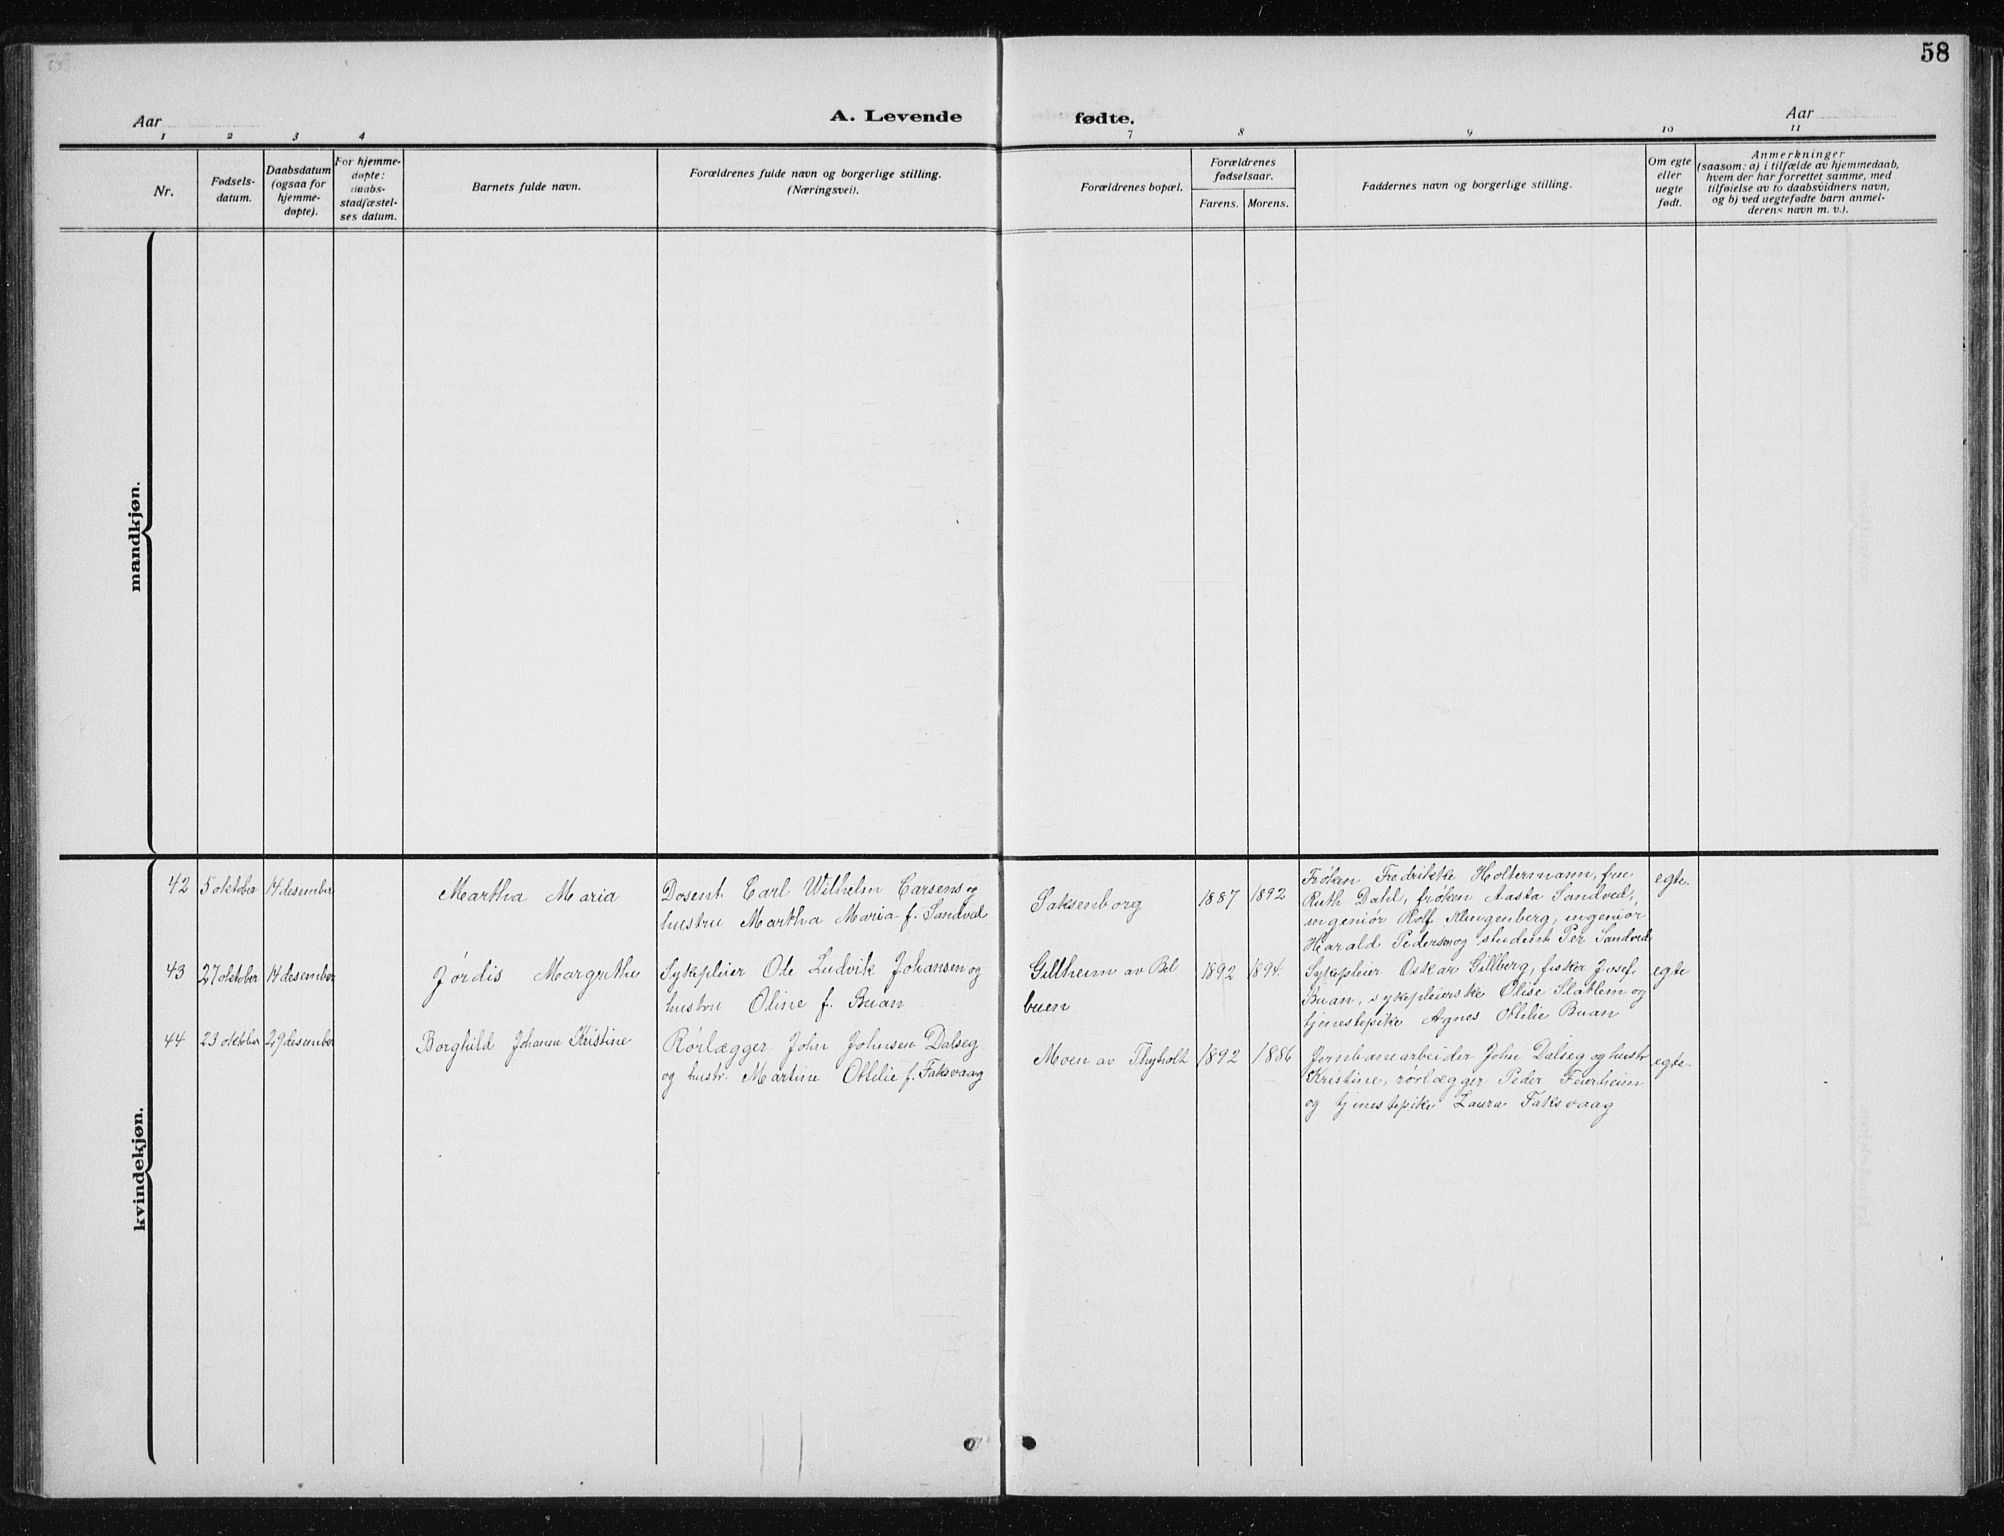 58
Aar A. Levende fødte. Aar
1 2 3 4 7 8 9 10 11
Nr.
Fødsels-
datum.
Daabsdatum
(ogsaa for
hjemme-
døpte).
For hjemme-
døpte:
daabs-
stadfæstel-
ses datum.
Barnets fulde navn.
Forældrenes fulde navn og borgerlige stilling.
(Næringsvei).
Forældrenes bopæl.
Forældrenes
fødselsaar.
Farens. Morens.
Faddernes navn og borgerlige stilling.
Om egte
eller
uegte
født.
Anmerkninger
(saasom: a) i tilfælde av hjemmedaab,
hvem der har forrettet samme, med
tilføielse av to daabsvidners navn,
og b) ved uegtefødte barn anmel-
derens navn m. v.).
mandkjøn.
kvindekjøn.
42 5 oktober 14 desember
Martha Maria
Dosent Carl Wilhelm Carsens og
hustru Martha Maria f. Sandval
Saksenborg
1887 1892
Frøken Fredrikke Holtermann, frue
Ruth Dahl, frøken Aasta Sandved,
ingeniør Rolf Klingenberg, ingeniør
Harald Pedersen og student Per Sandved
egte.
43 27 oktober 14 desember
Jørdis Margrethe
Sykepleier Ole Ludvik Johansen og
hustru Oline f. Buan
Gillheim av Bel
buen
1892 1894.
Sykepleier Oskar Gillberg, fisker Josef
Buan, sykepleierske Olise Slatlem og
tjenestepike Agnes Otelie Buan
egte
44 23 oktober 29 desember
Borghild Johanna Kristine
Rørlægger John Johnsen Dalseg
og hustr. Martine Otelie f. Faksvaag
Moen av Thyholt
1892 1886
Jernbanearbeider John Dalseg og hustr
Kristine, rørlægger Peder Feierheim
og tjenestepike Laura Faksvaag
egte.